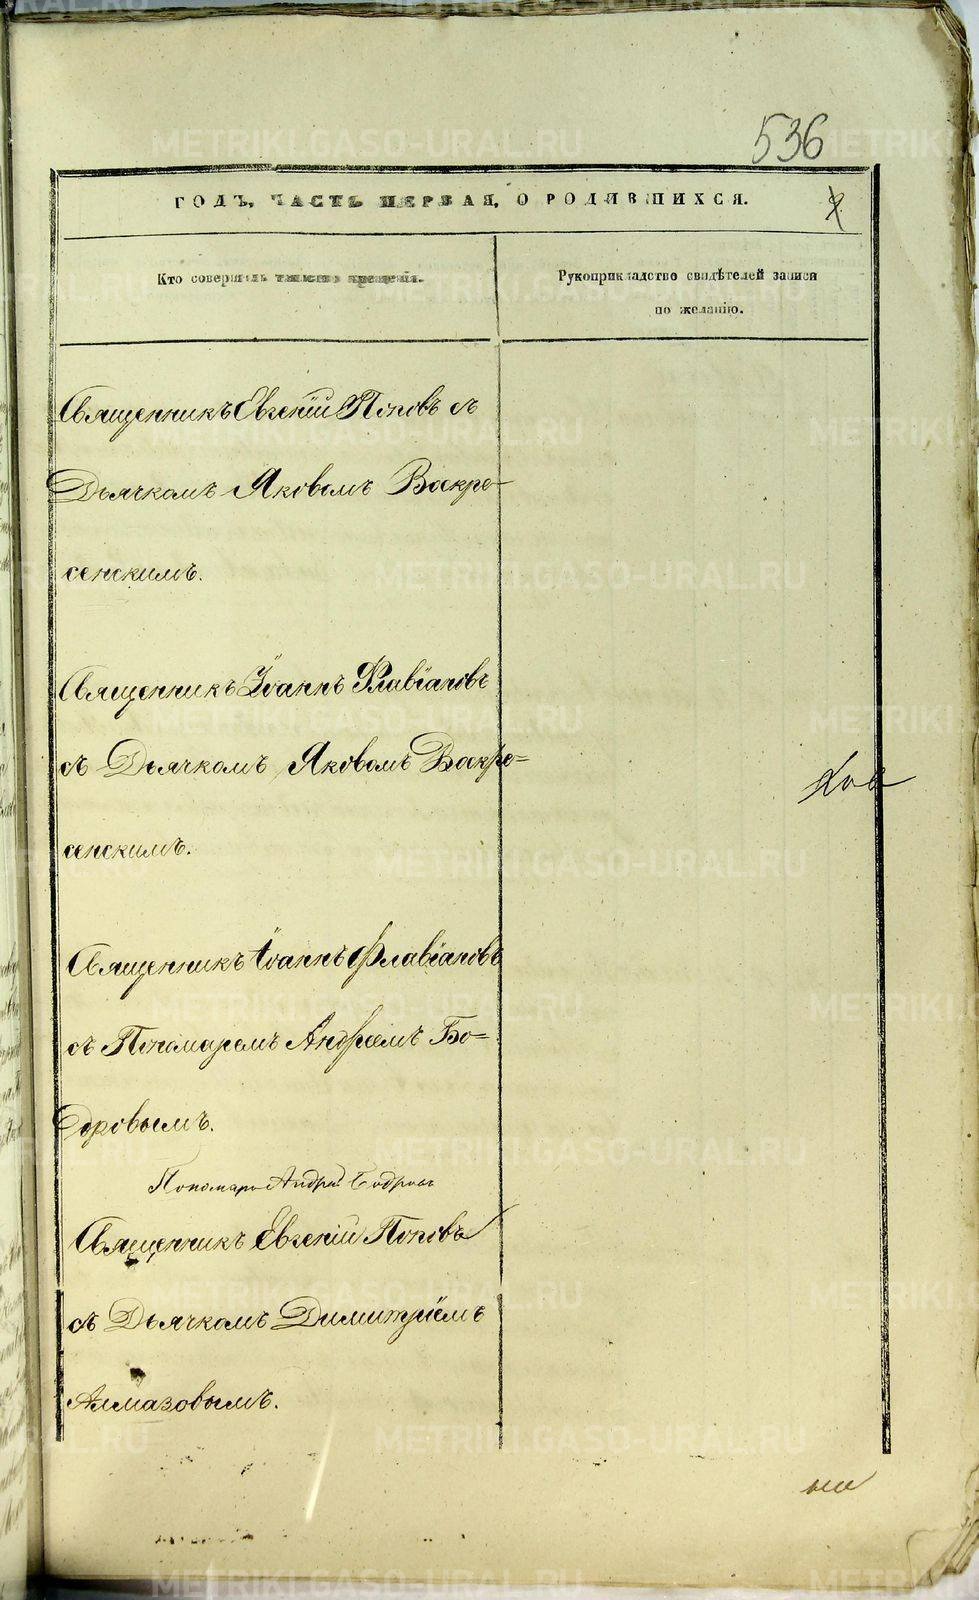 536
ГОДЪ, ЧАСТЬ ПЕРВАЯ, О РОДИВШИХСЯ.
Кто совершалъ таинство крещенія.
Рукоприкладство свидѣтелей записи
по желанію.
Священникъ Евгеній Поповъ съ
Дьячкомъ Яковомъ Воскре-
сенскимъ.
Священникъ Іоаннъ Флавіановъ
съ Дьячкомъ Яковомъ Воскре=
сенскимъ.
Священникъ Іоаннъ Флавіановъ
съ Пономаремъ Андреемъ Бо=
дровымъ.
Пономарь Андрей Бодровъ
Священникъ Евгеній Поповъ
съ Дьячкомъ Димитріемъ
Алмазовымъ.
METRIKI.GASO-URAL.RU